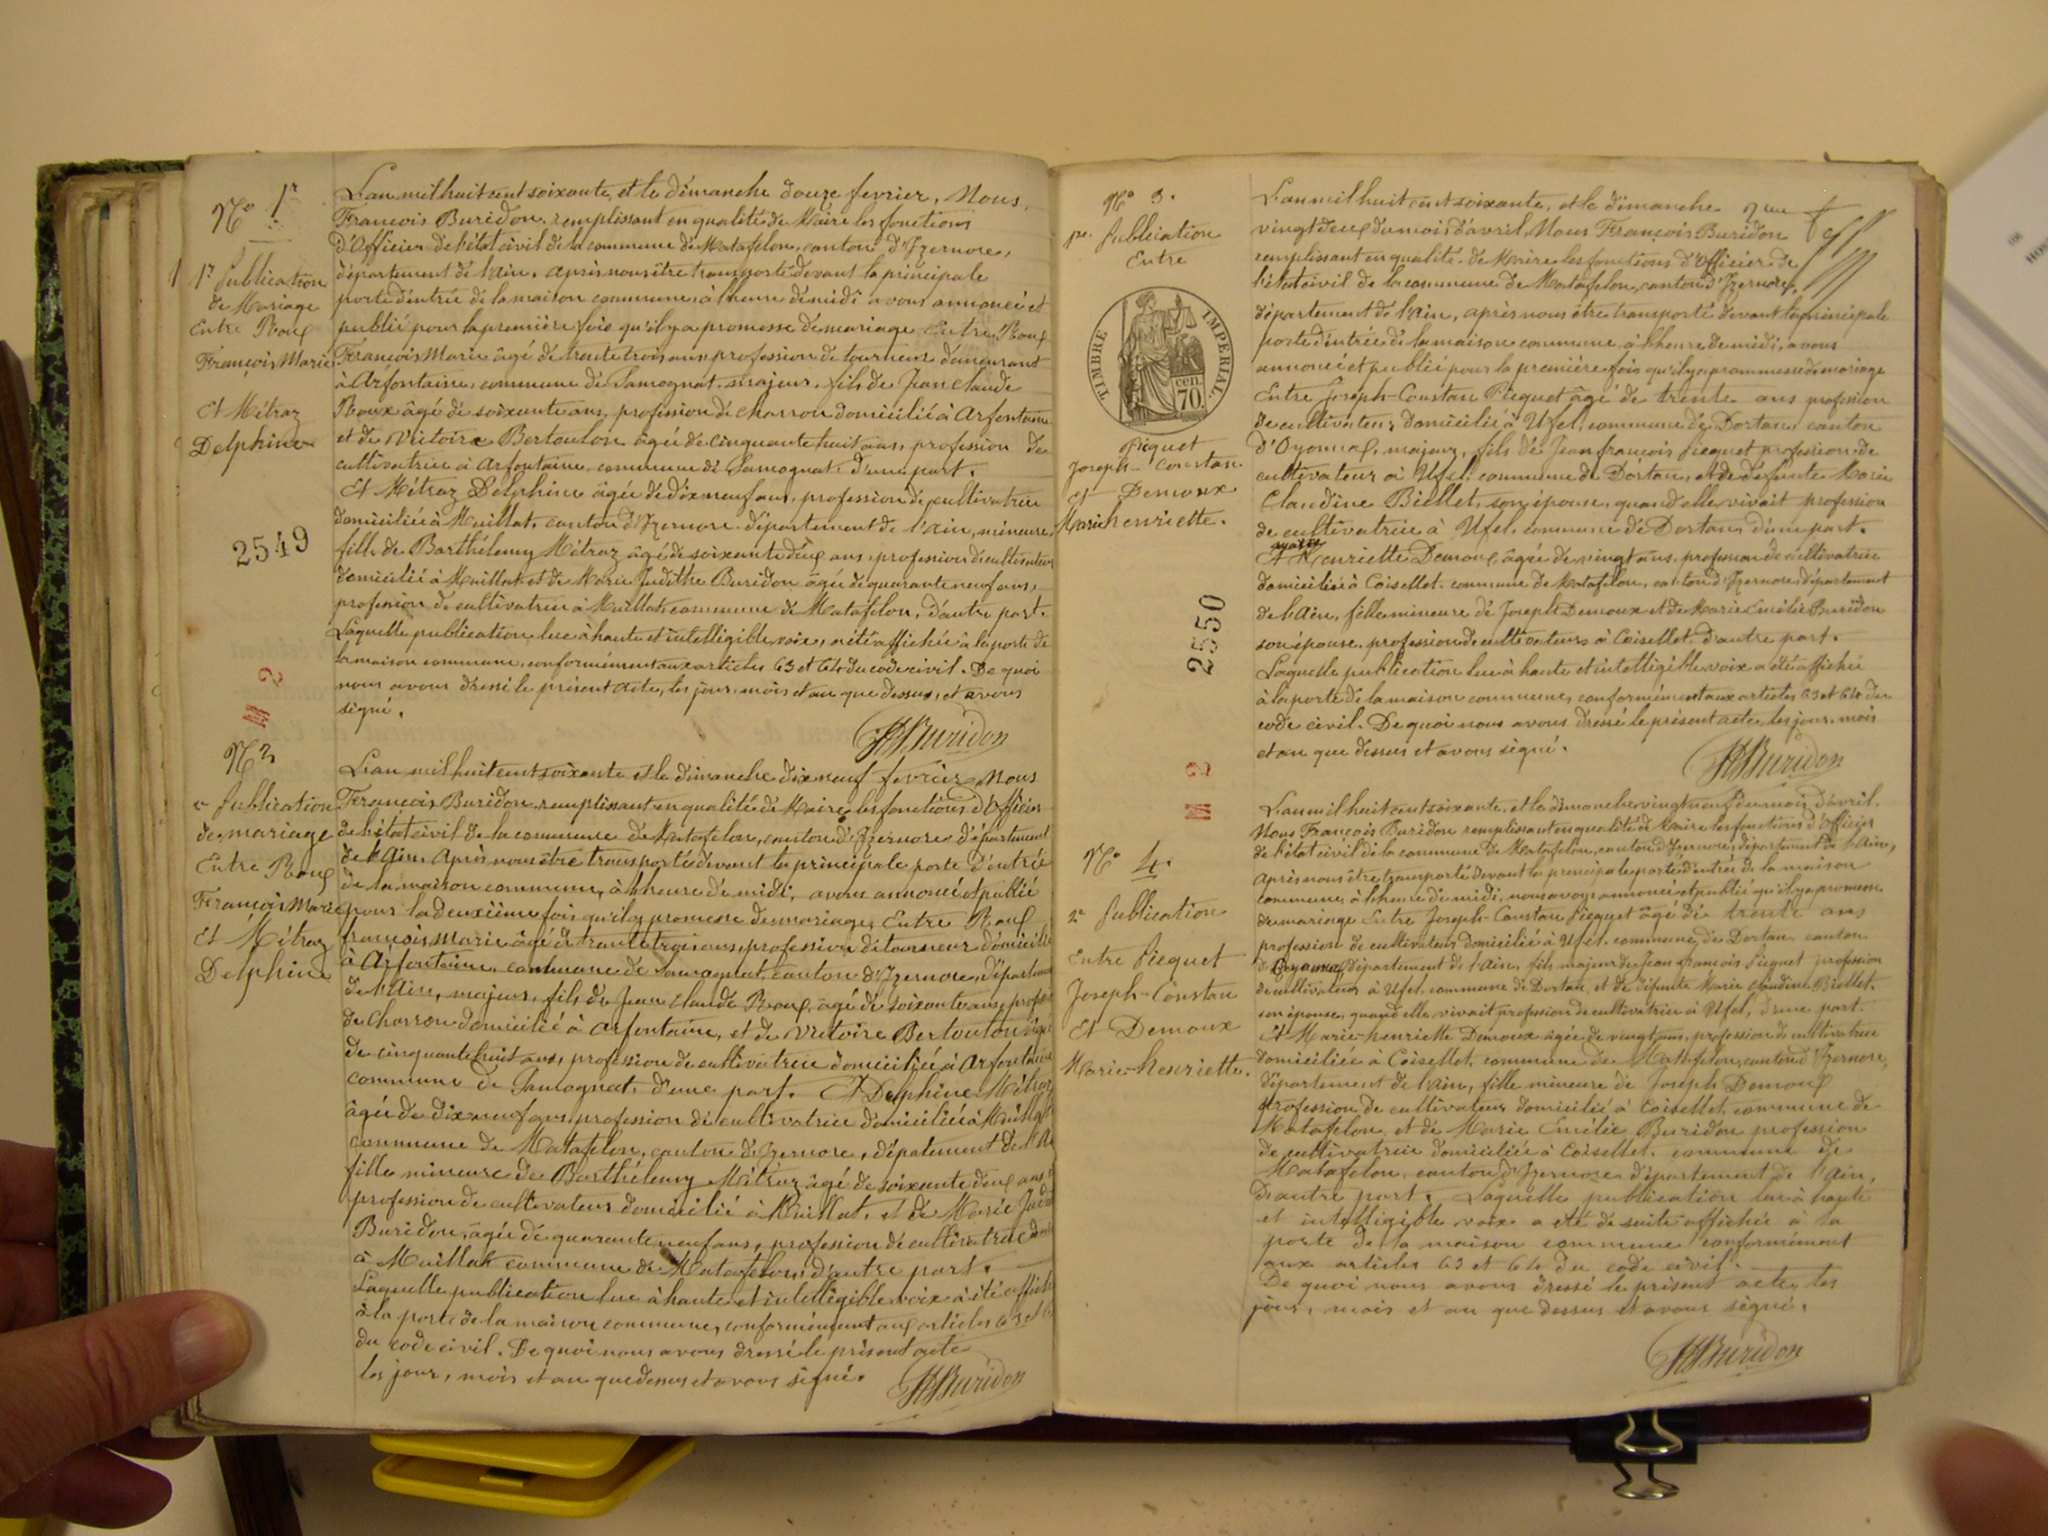 N° 1er
1re Publication
de Mariage
Entre Roux
François Marie
Et Métraz
Delphine
2549
L'an mil huit cent soixante, et le dimanche douze fevrier, Nous,
François Buridon, remplissant en qualité de Maire les fonctions
d'Officier de l'état civil de la commune de Matafelon, canton d'Izernore,
département de l'Ain. après nous être transporté devant la principale
porte d'entrée de la maison commune, à l'heure de midi avons annoncé et
publié pour la première fois qu'il y a promesse de mariage Entre Roux
François Marie âgé de trente trois ans, profession de tourneur demeurant
à Arfontaine, commune de Samognat, majeur, fils de Jean Claude
Roux âgé de soixante ans, profession de charron domicilié à Arfontaine
et de Victoire Bertoulon âgée de cinquante huit ans, profession de
cultivatrice à Arfontaine commune de Samognat, d'une part.
Et Métraz Delphine âgée de dix neuf ans, profession de cultivatrice
domiciliée à Maillat, canton d'Izernore département de l'Ain, mineure,
fille de Barthélemy Métraz âgé de soixante deux ans, profession de cultivateur
domicilié à Maillat et de Marie Judithe Buridon âgée de quarante neuf ans,
profession de cultivatrice à Maillat commune de Matafelon, d'autre part.
Laquelle publication lue à haute et intelligible voix, a été affichée à la porte de
la maison commune, conformément aux articles 63 et 64 du code civil. De quoi
nous avons dressé le présent acte, les jour, mois et an que dessus, et avons
signé.
Buridon
M 2
N° 2
e Publication
de mariage
Entre Roux
François Marie
Et Métraz
Delphine
L'an mil huit cent soixante et le dimanche dix neuf fevrier, Nous
François Buridon remplissant en qualité de Maire les fonctions d'Officier
de l'état civil de la commune de Matafelon, canton d'Izernore département
de l'Ain. Après nous être transporté devant la principale porte d'entrée
de la maison commune, à l'heure de midi, avons annoncé et publié
pour la deuxième fois qu'il y promesse de mariage, Entre Roux
françois Marie âgé de trente trois ans, profession de tourneur domicilié
à Arfontaine, commune de Samognat, canton d'Izernore, départem
de l'Ain, majeur, fils de Jean Claude Roux, âgé de soixante ans, profes
de Charron domicilié à Arfontaine, et de Victoire Bertoulon âgée
de cinquante huit ans, profession de cultivatrice domiciliée à Arfontaine
commune de Samognat, d'une part. Et Delphine Métraz
âgée de dix neuf ans, profession de cultivatrice domiciliée à Maillat
commune de Matafelon, canton d'Izernore, département de l'Ai
fille mineure de Barthélemy Métraz âgé de soixante deux ans
profession de cultivateur domicilié à Maillat, et de Marie Judi
Buridon, âgée de quarante neuf ans, profession de cultivatrice dom
à Maillat commune de Matafelon, d'autre part.
Laquelle publication lue à haute et intelligible voix a été affich
à la porte de la maison commune, conformément aux articles 63 et 6
du code civil. De quoi nous avons dressé le présent acte
les jour, mois et an que dessus et avons signé.
Buridon
N° 3.
pe. Publication
Entre
TIMBRE IMPERIAL.
70 cen.
Piequet
Joseph-Constan
Et Demoux
Marie henriette.
2550
M 2
L'an mil huit cent soixante, et le dimanche
vingt deux du mois d'avril, Nous François Buridon
remplissant en qualité de Maire les fonctions d'Officier de
l'état civil de la commune de Matafelon, canton d'Izernore,
département de l'Ain, après nous être transporté devant la principale
porte d'entrée de la maison commune, à l'heure de midi, avons
annoncé et publié pour la première fois qu'il y a prommesse de mariage
Entre Joseph-Constan Piequet âgé de trente ans profession
de cultivateur, domicilié à Ufel, commune de Dortan, canton
d'Oyonnax, majeur, fils de Jean françois Piequet profession de
cultivateur à Ufel, commune de Dortan, et de défunte Marie
Claudine Biellet, son épouse, quand elle vivait profession
de cultivatrice à Ufel, commune de Dortan, d'une part.
marie
Et Henriette Demoux âgée de vingt ans, profession de cultivatrice
domiciliée à Coisellet, commune de Matafelon, canton d'Izernore, département
de l'Ain, fille mineure de Joseph Demoux et de Marie Emélie Buridon
son épouse, profession de cultivateurs à Coisellet, d'autre part.
Laquelle publication lue à haute et intelligible voix a été affiché
à la porte de la maison commune, conformément aux articles 63 et 64 du
code civil. De quoi nous avons dressé le présent acte les jour, mois
et an que dessus et avons signé.
Buridon
N° 4.
2e Publication
Entre Piequet
Joseph-Constan
Et Demoux
Marie-henriette.
L'an mil huit cent soixante, et le dimanche vingt neuf du mois d'avril.
Nous François Buridon remplissant en qualité de Maire les fonctions d'Officier
de l'état civil de la commune de Matafelon, canton d'Izernore, département de l'Ain,
Après nous être transporté devant la principale porte d'entrée de la maison
commune, à l'heure de midi, nous avons annoncé et publié qu'il y a promesse
de mariage Entre Joseph-Constan Piequet âgé de trente ans
profession de cultivateur domicilié à Ufel, commune de Dortan canton
d'Oyonnax, département de l'Ain, fils majeur de Jean françois Piequet profession
de cultivateur à Ufel, commune de Dortan, et de défunte Marie Claudine Biellet,
son épouse, quand elle vivait profession de cultivatrice à Ufel, d'une part.
Et Marie-henriette Demoux âgée de vingt ans, profession de cultivatrice
domiciliée à Coisellet, commune de Matafelon, canton d'Izernore,
département de l'Ain, fille mineure de Joseph Demoux
profession de cultivateur domicilié à Coisellet, commune de
Matafelon, et de Marie Emélie Buridon profession
de cultivatrice domiciliée à Coisellet, commune de
Matafelon, canton d'Izernore département de l'Ain,
d'autre part. Laquelle publication lue à haute
et intelligible voix a été de suite affichée à la
porte de la maison commune conformément
aux articles 63 et 64 du code civil.
De quoi nous avons dressé le présent acte, les
jour, mois et an que dessus et avons signé.
Buridon